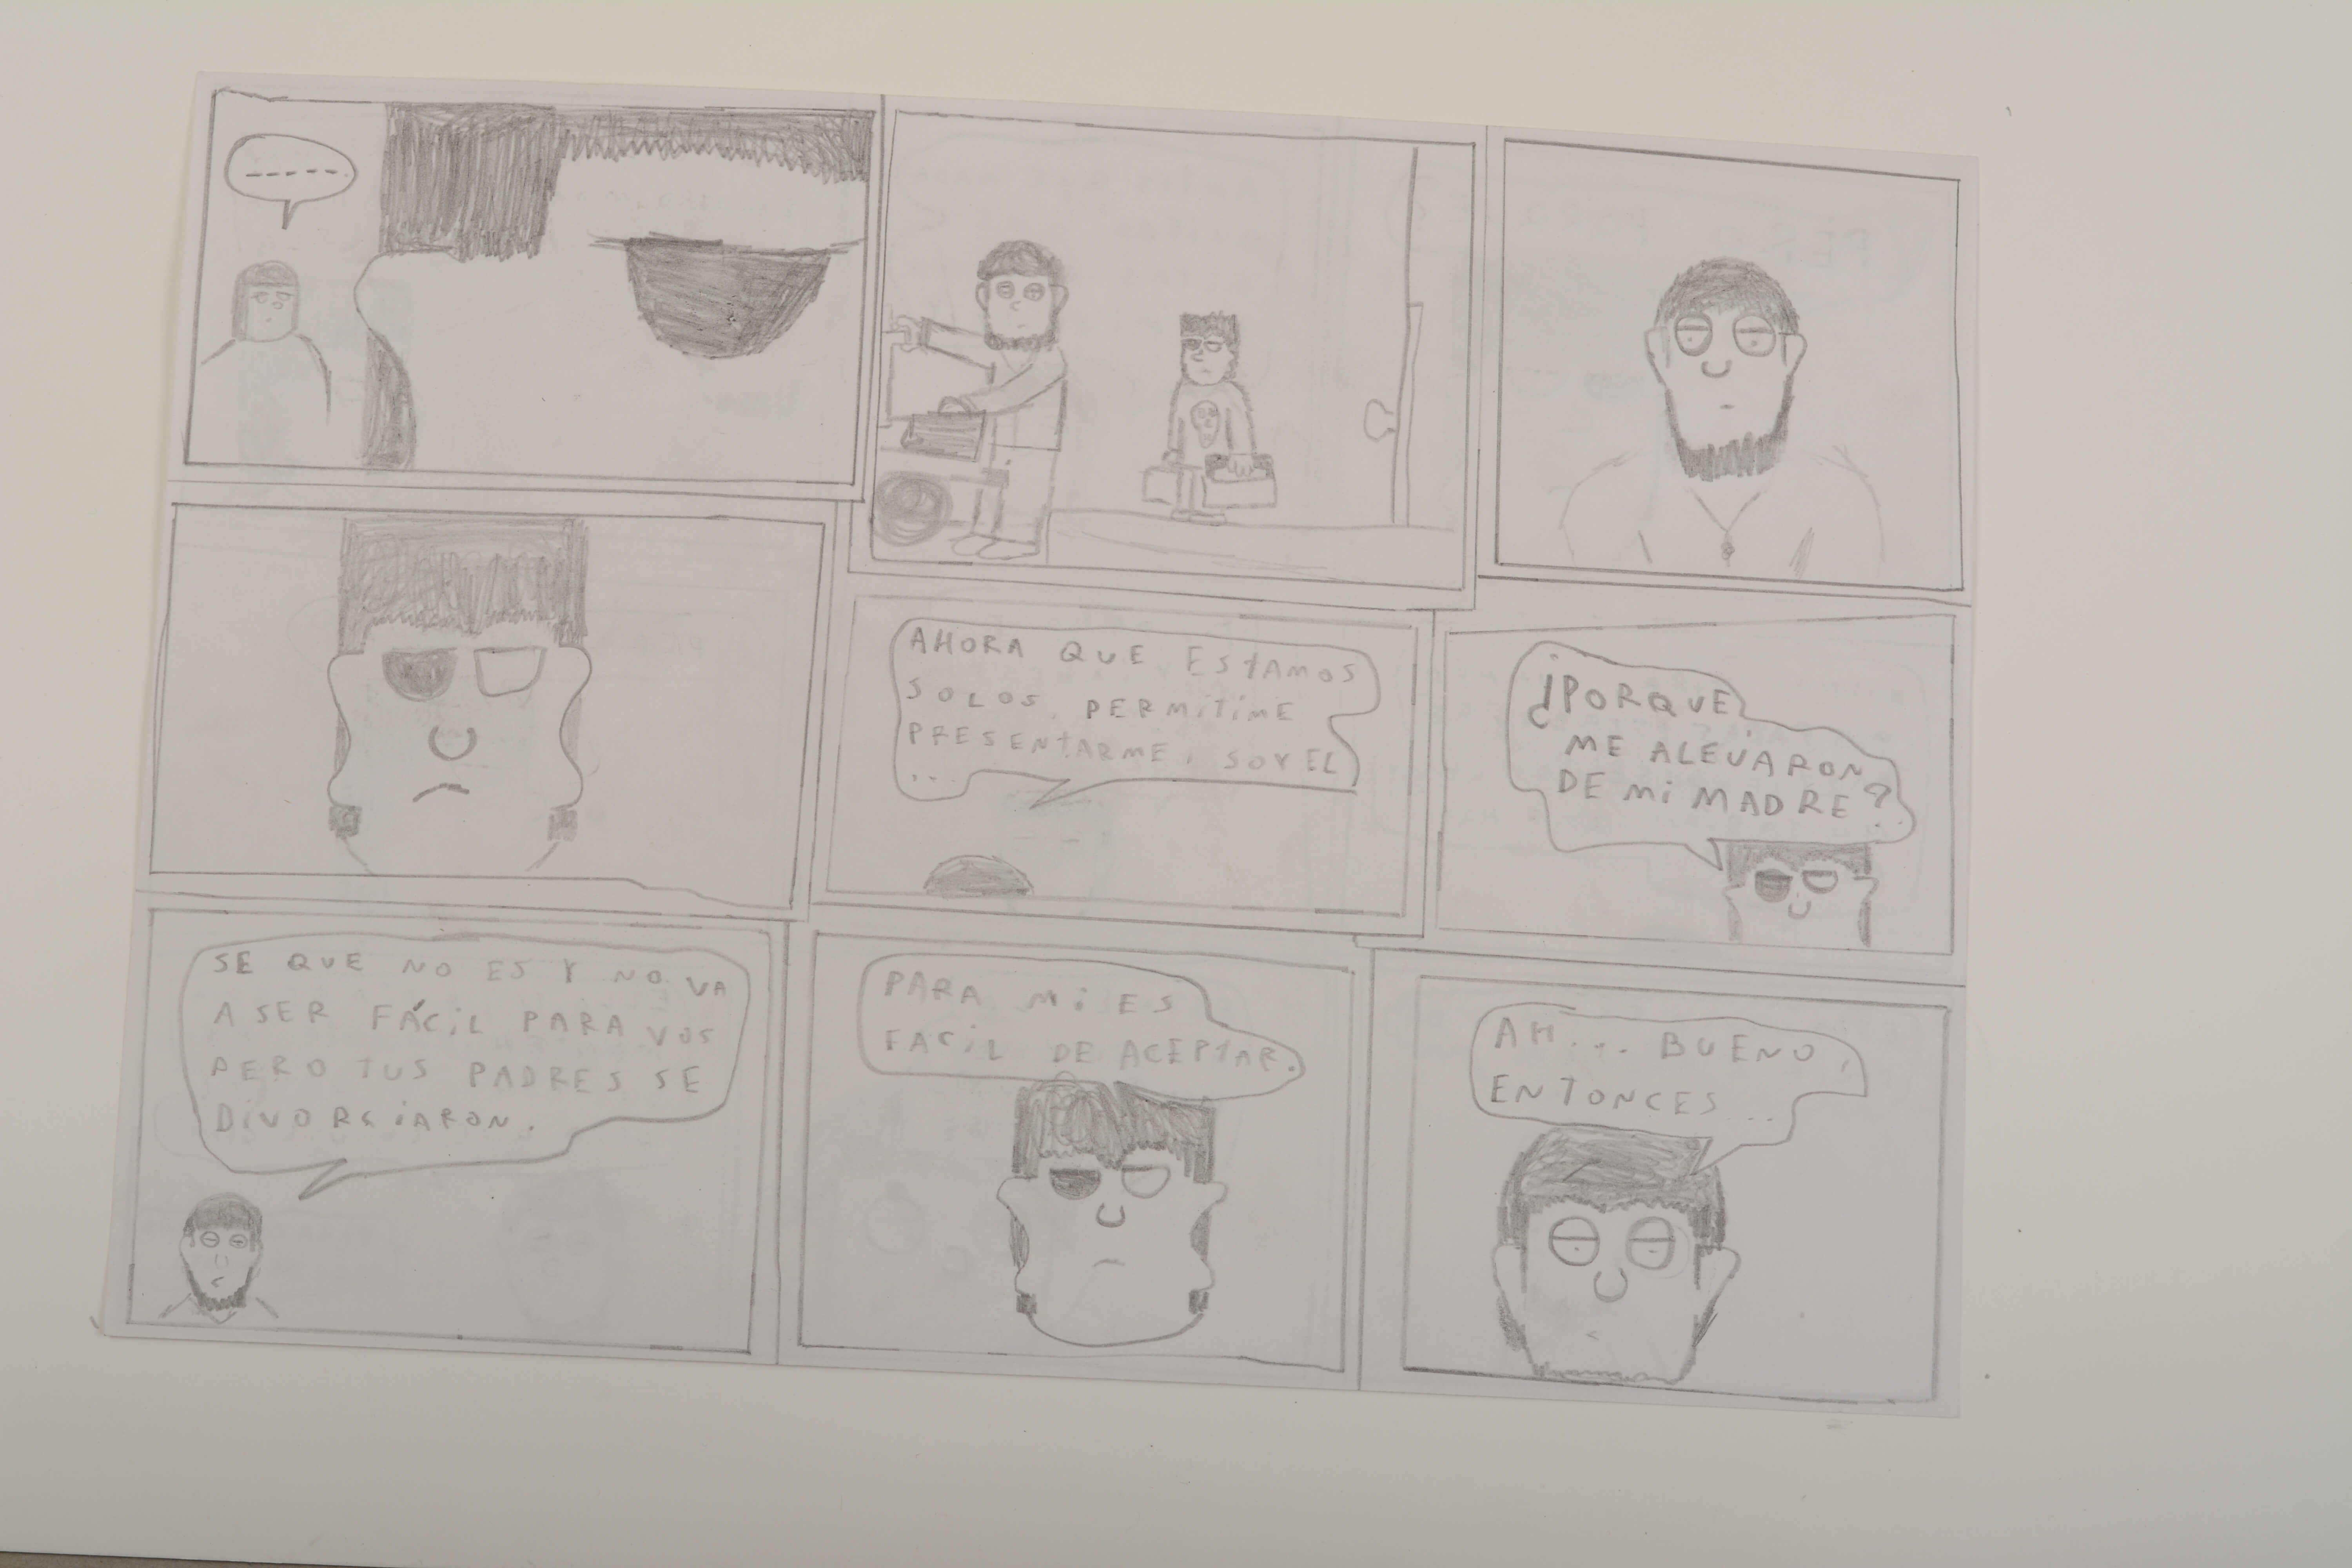 ------
AHORA QUE ESTAMOS
SOLOS, PERMITIME
PRESENTARME, SOY EL
...
¿PORQUE
ME ALEVARON
DE MI MADRE?
SE QUE NO ES Y NO VA
A SER FÁCIL PARA VOS
PERO TUS PADRES SE
DIVORSIARON.
PARA MI ES
FACIL DE ACEPTAR.
AH... BUENO,
ENTONCES...